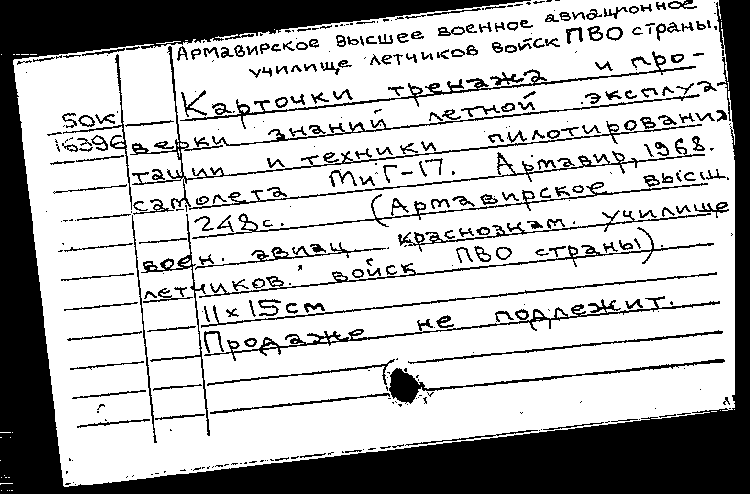 Армавирское высшее военное авиационное
училище летчиков войск ПВО страны.
Карточки тренажа и про-
50к
16396 верки знаний летной эксплуа-
тации и техники пилотирования
самолета МиГ-17. Армавир, 1968.
248с. (Армавирское высш.
воен. авиац. краснознам. училище
летчиков войск ПВО страны).
11×15см
Продаже не подлежит.